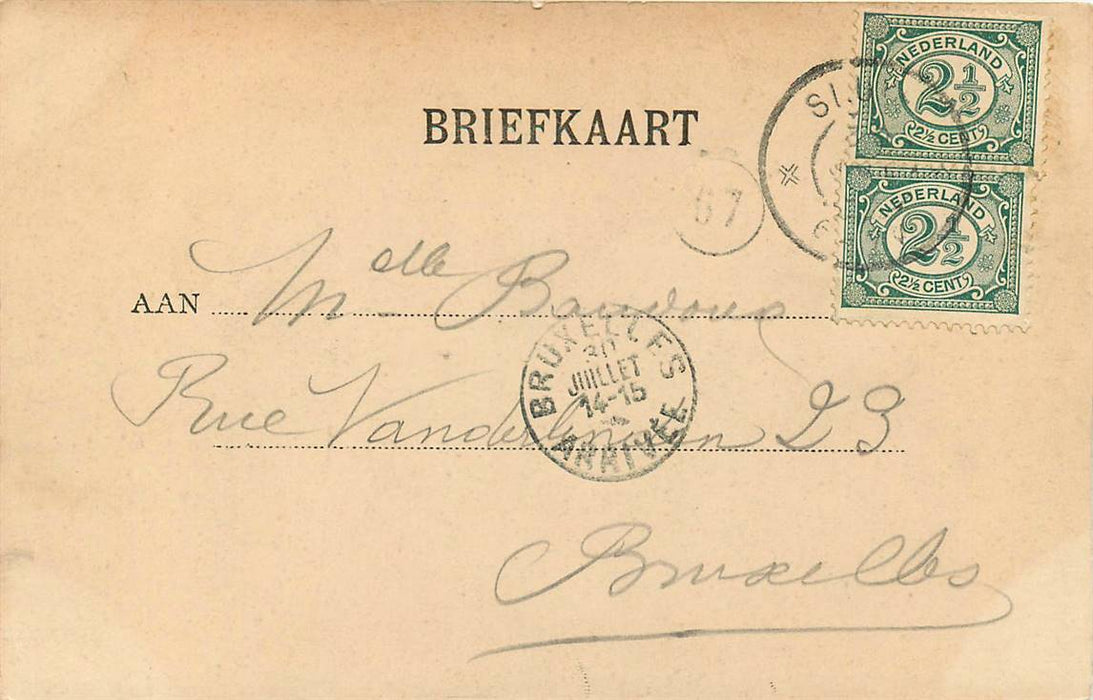 BRIEFKAART
NEDERLAND
2½
2½ CENT
NEDERLAND
2½
2½ CENT
67
AAN Melle Baudoux
BRUXELLES
30
JUILLET
14-15
ARRIVÉE
Rue Vanderlinden 23
Bruxelles